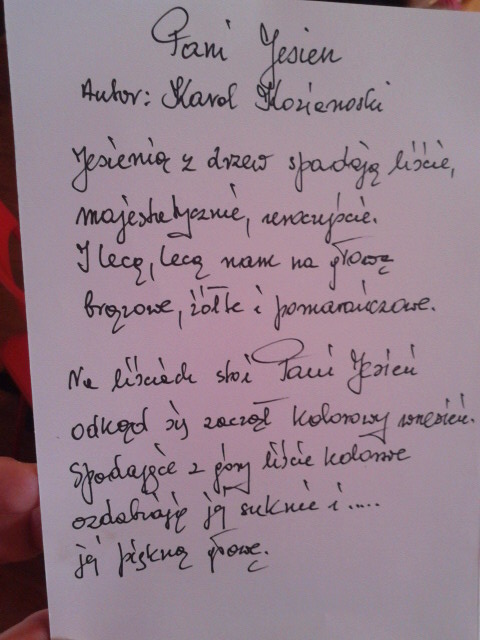 Pani Jesień
Autor: Karol Kozianoski
Jesienią z drzew spadają liście,
majestetycznie, uroczyście.
I lecą, lecą nam na głowę
brązowe, żółte i pomarańczowe.
Na liściach stoi Pani Jesień
odkąd się zaczął kolorowy wrzesień.
Spadające z góry liście kolorowe
ozdabiają jej suknie i....
jej piękną głowę.